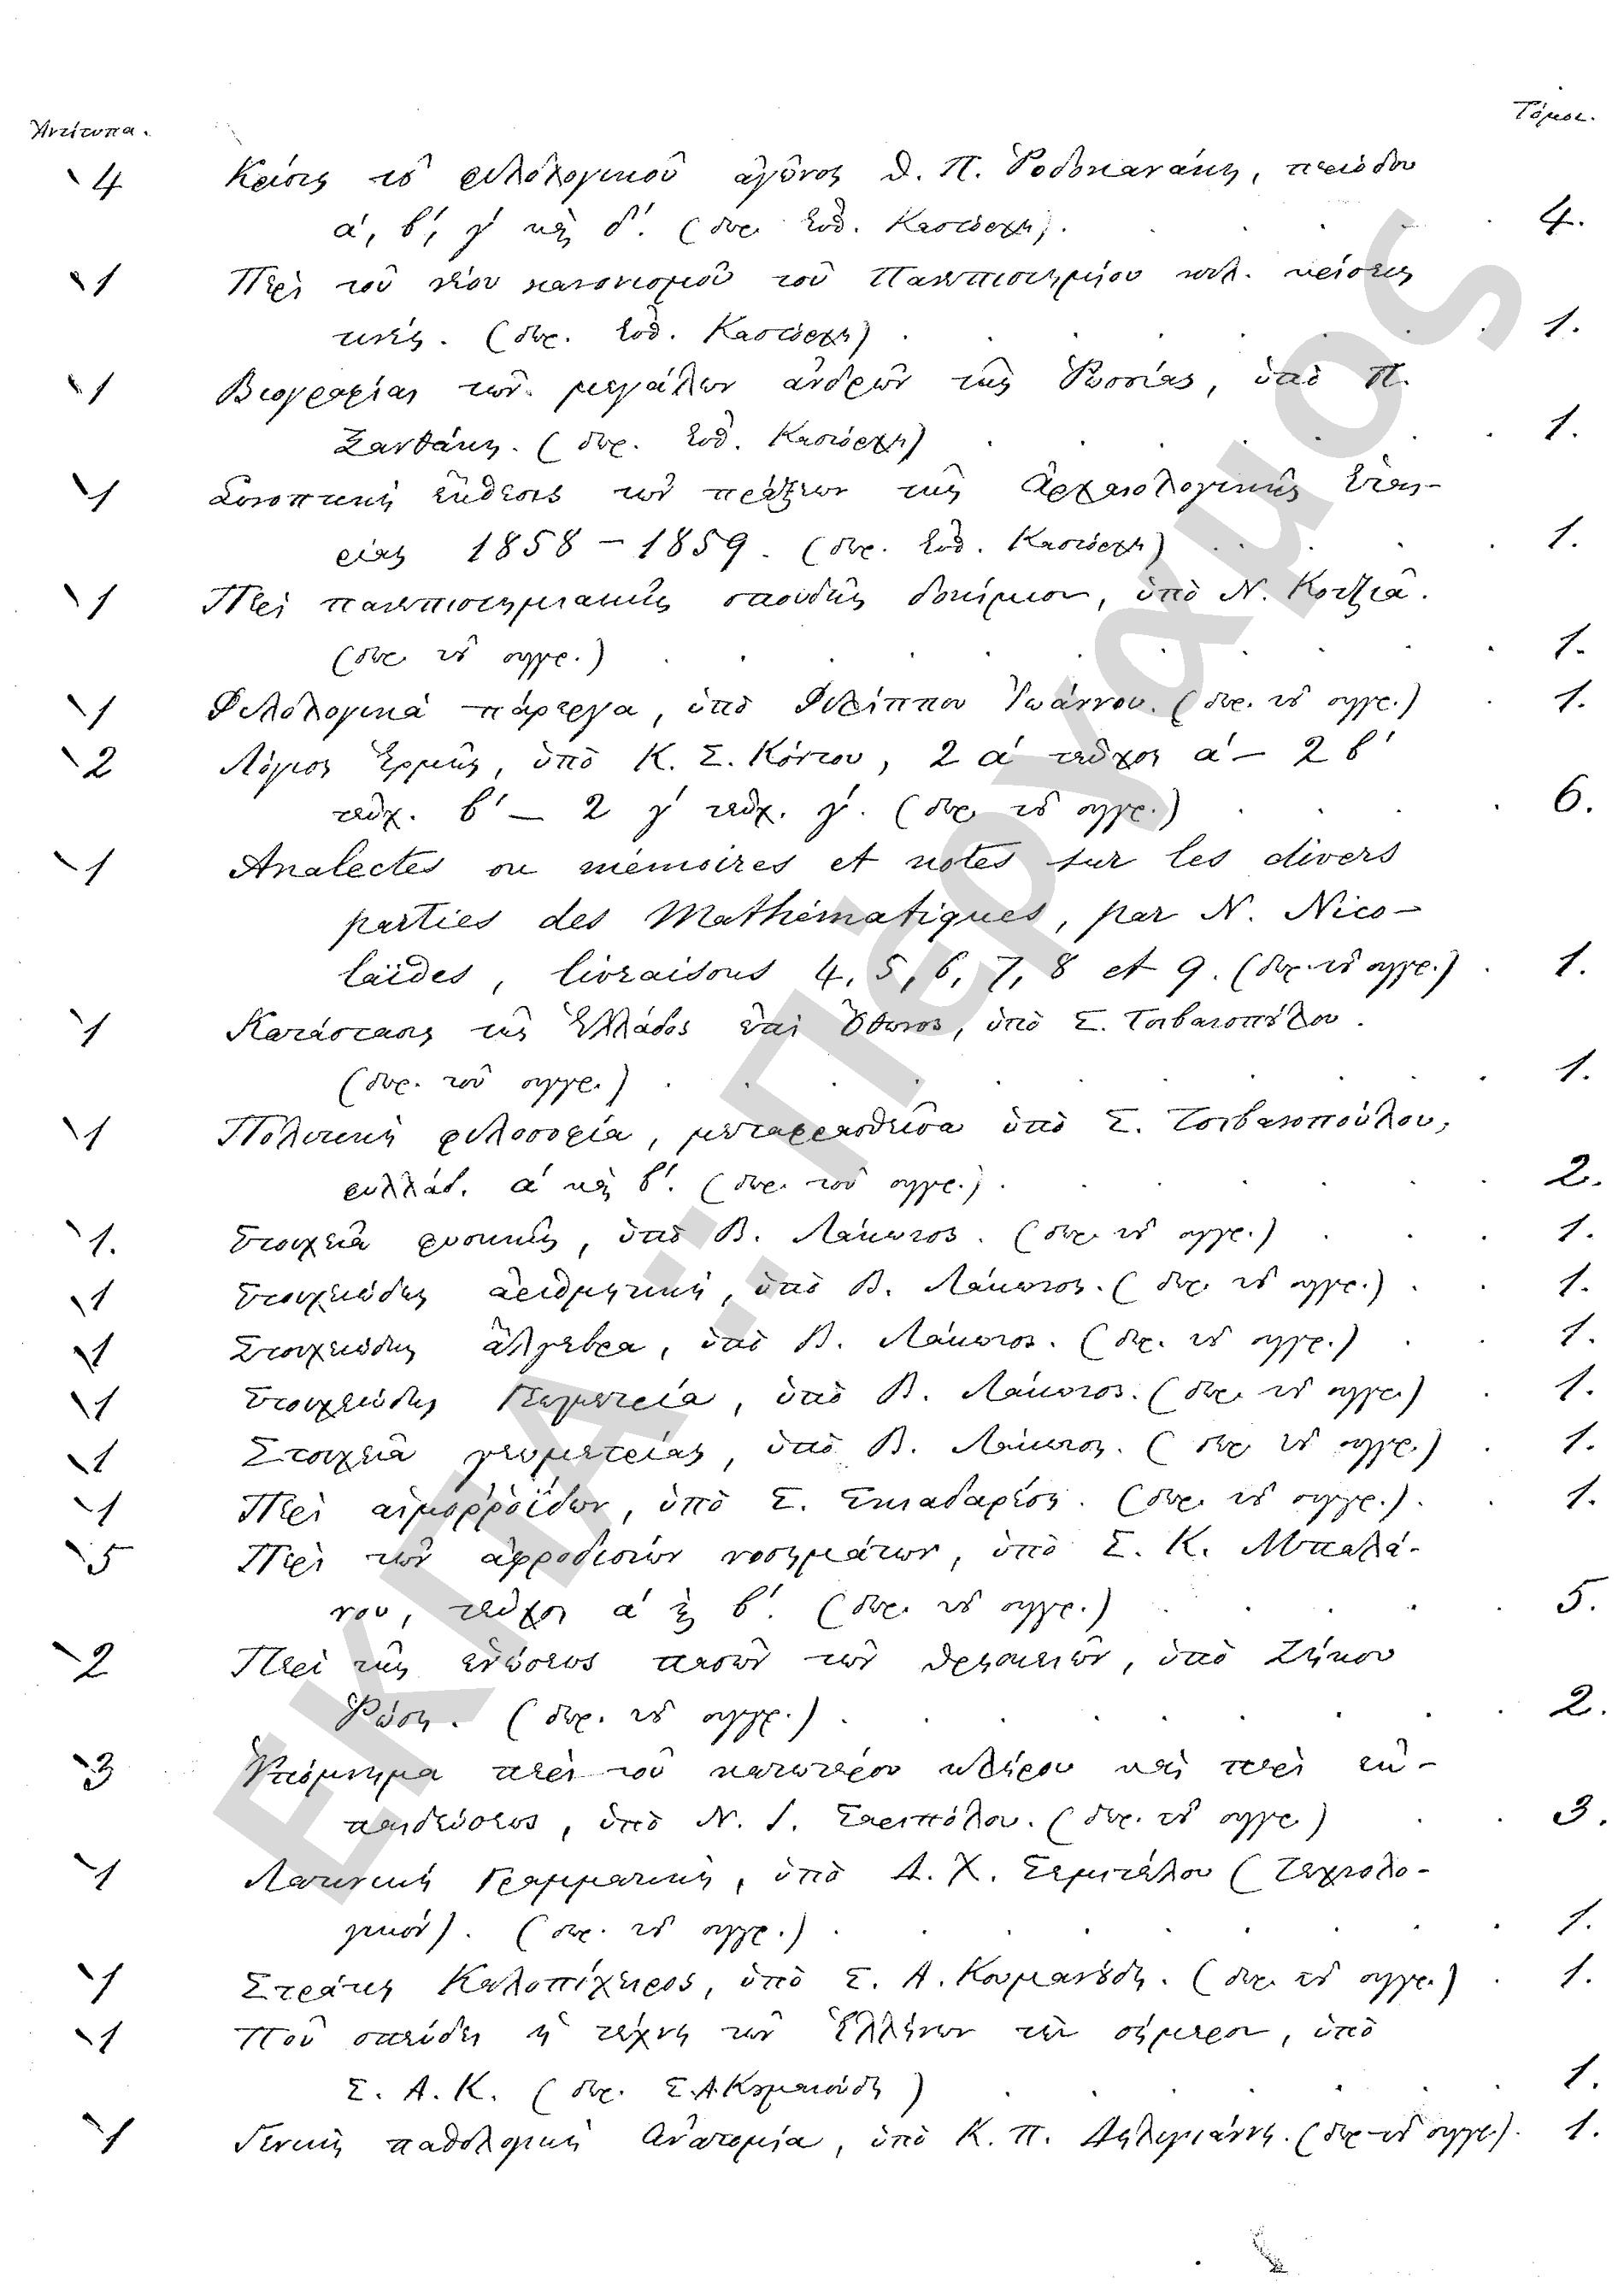 Ἀντίτυπα. Τόμοι.
4 Κρίσις τοῦ φιλολογικοῦ ἀγῶνος Θ. Π. Ῥοδοκανάκη, περιόδου
α΄, β΄, γ΄ καὶ δ΄. (δωρ. Εὐθ. Καστόρχη). 4.
1 Περὶ τοῦ νέου κανονισμοῦ τοῦ Πανεπιστημίου κτλ. κρίσεις
τινές. (δωρ. Εὐθ. Καστόρχη) 1.
1 Βιογραφίαι τῶν μεγάλων ἀνδρῶν τῆς Ῥωσσίας, ὑπὸ Π.
Ξανθάκη. (δωρ. Εὐθ. Καστόρχη) 1.
1 Συνοπτικὴ ἔκθεσις τῶν πράξεων τῆς Ἀρχαιολογικῆς Ἑται-
ρίας 1858 – 1859. (δωρ. Εὐθ. Καστόρχη) 1.
1 Περὶ πανεπιστημιακῆς σπουδῆς δοκίμιον, ὑπὸ Ν. Κοτζιᾶ.
(δωρ. τοῦ συγγρ.) 1.
1 Φιλολογικὰ πάρεργα, ὑπὸ Φιλίππου Ἰωάννου. (δωρ. τοῦ συγγρ.) 1.
2 Λόγιος Ἑρμῆς, ὑπὸ Κ. Σ. Κόντου, 2 α΄ τεῦχος α΄ – 2 β΄
τεῦχ. β΄ – 2 γ΄ τεῦχ. γ΄. (δωρ. τοῦ συγγρ.) 6.
1 Analectes ou mémoires et notes sur les divers
parties des Mathématiques, par N. Nico-
laïdes, livraisons 4, 5, 6, 7, 8 et 9. (δωρ. τοῦ συγγρ.) 1.
1 Κατάστασις τῆς Ἑλλάδος ἐπὶ Ὄθωνος, ὑπὸ Σ. Τσιβανοπούλου.
(δωρ. τοῦ συγγρ.) 1.
1 Πολιτικὴ φιλοσοφία, μεταφρασθεῖσα ὑπὸ Σ. Τσιβανοπούλου,
φυλλάδ. α΄ καὶ β΄. (δωρ. τοῦ συγγρ.) 2.
1. Στοιχεῖα φυσικῆς, ὑπὸ Β. Λάκωνος. (δωρ. τοῦ συγγρ.) 1.
1 Στοιχειώδης ἀριθμητική, ὑπὸ Β. Λάκωνος. (δωρ. τοῦ συγγρ.) 1.
1 Στοιχειώδης ἄλγεβρα, ὑπὸ Β. Λάκωνος. (δωρ. τοῦ συγγρ.) 1.
1 Στοιχειώδης Γεωμετρία, ὑπὸ Β. Λάκωνος. (δωρ. τοῦ συγγρ.) 1.
1 Στοιχεῖα γεωμετρίας, ὑπὸ Β. Λάκωνος. (δωρ. τοῦ συγγρ.) 1.
1 Περὶ αἱμορροΐδων, ὑπὸ Σ. Σκιαδαρέση. (δωρ. τοῦ συγγρ.). 1.
5 Περὶ τῶν ἀφροδισίων νοσημάτων, ὑπὸ Σ. Κ. Μπαλά-
νου, τεῦχος α΄ καὶ β΄. (δωρ. τοῦ συγγρ.) 5.
2 Περὶ τῆς ἑνώσεως πασῶν τῶν θρησκειῶν, ὑπὸ Ζήκου
Ῥώση. (δωρ. τοῦ συγγρ.) 2.
3 Ὑπόμνημα περὶ τοῦ κατωτέρου κλήρου καὶ περὶ ἐκ-
παιδεύσεως, ὑπὸ Ν. Ι. Σαριπόλου. (δωρ. τοῦ συγγρ.) 3.
1 Λατινικὴ Γραμματική, ὑπὸ Δ. Χ. Σεμιτέλου (Τεχνολο-
γικόν). (δωρ. τοῦ συγγρ.) 1.
1 Στράτης Καλοπίχειρος, ὑπὸ Σ. Α. Κουμανούδη. (δωρ. τοῦ συγγρ.) 1.
1 Ποῦ σπεύδει ἡ τέχνη τῶν Ἑλλήνων τὴν σήμερον, ὑπὸ
Σ. Α. Κ. (δωρ. Σ. Α. Κουμανούδη) 1.
1 Γενικὴ παθολογικὴ Ἀνατομία, ὑπὸ Κ. Π. Δηλιγιάννη. (δωρ. τοῦ συγγρ.). 1.
ΕΚΠΑ::Πέργαμος